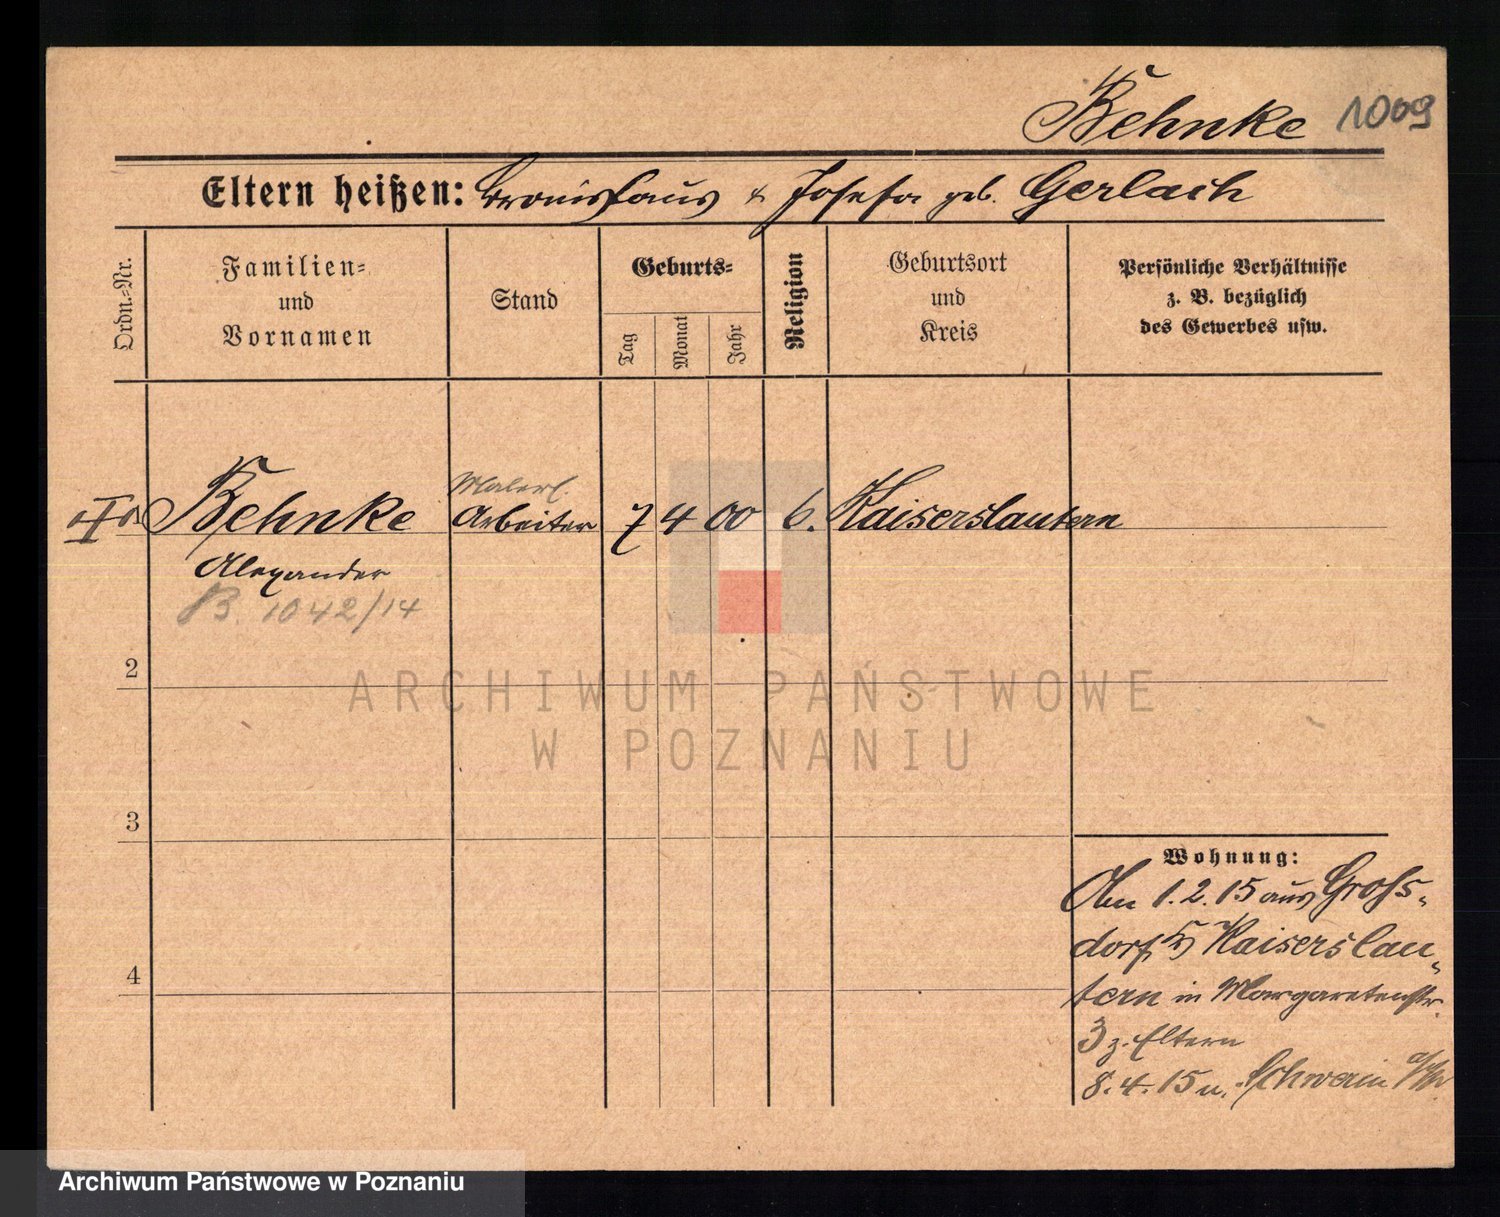 Behnke 1009
Eltern heißen: Bronislaus & Josefa geb. Gerlach
Ordn.-Nr.
Familien-
und
Vornamen
Stand
Geburts-
Tag
Monat
Jahr
Religion
Geburtsort
und
Kreis
Persönliche Verhältnisse
z. B. bezüglich
des Gewerbes usw.
Malerl.
Behnke Arbeiter 7 4 00 6. Kaiserslautern
Alexander
B. 1042/14
2
3
4
Wohnung:
Am 1.2.15 aus Gross-
dorf Kaiserslau-
tern in Margaretenstr.
3 z. Eltern
8.4.15 n. Schwerin a/W.
ARCHIWUM PAŃSTWOWE
W POZNANIU
Archiwum Państwowe w Poznaniu